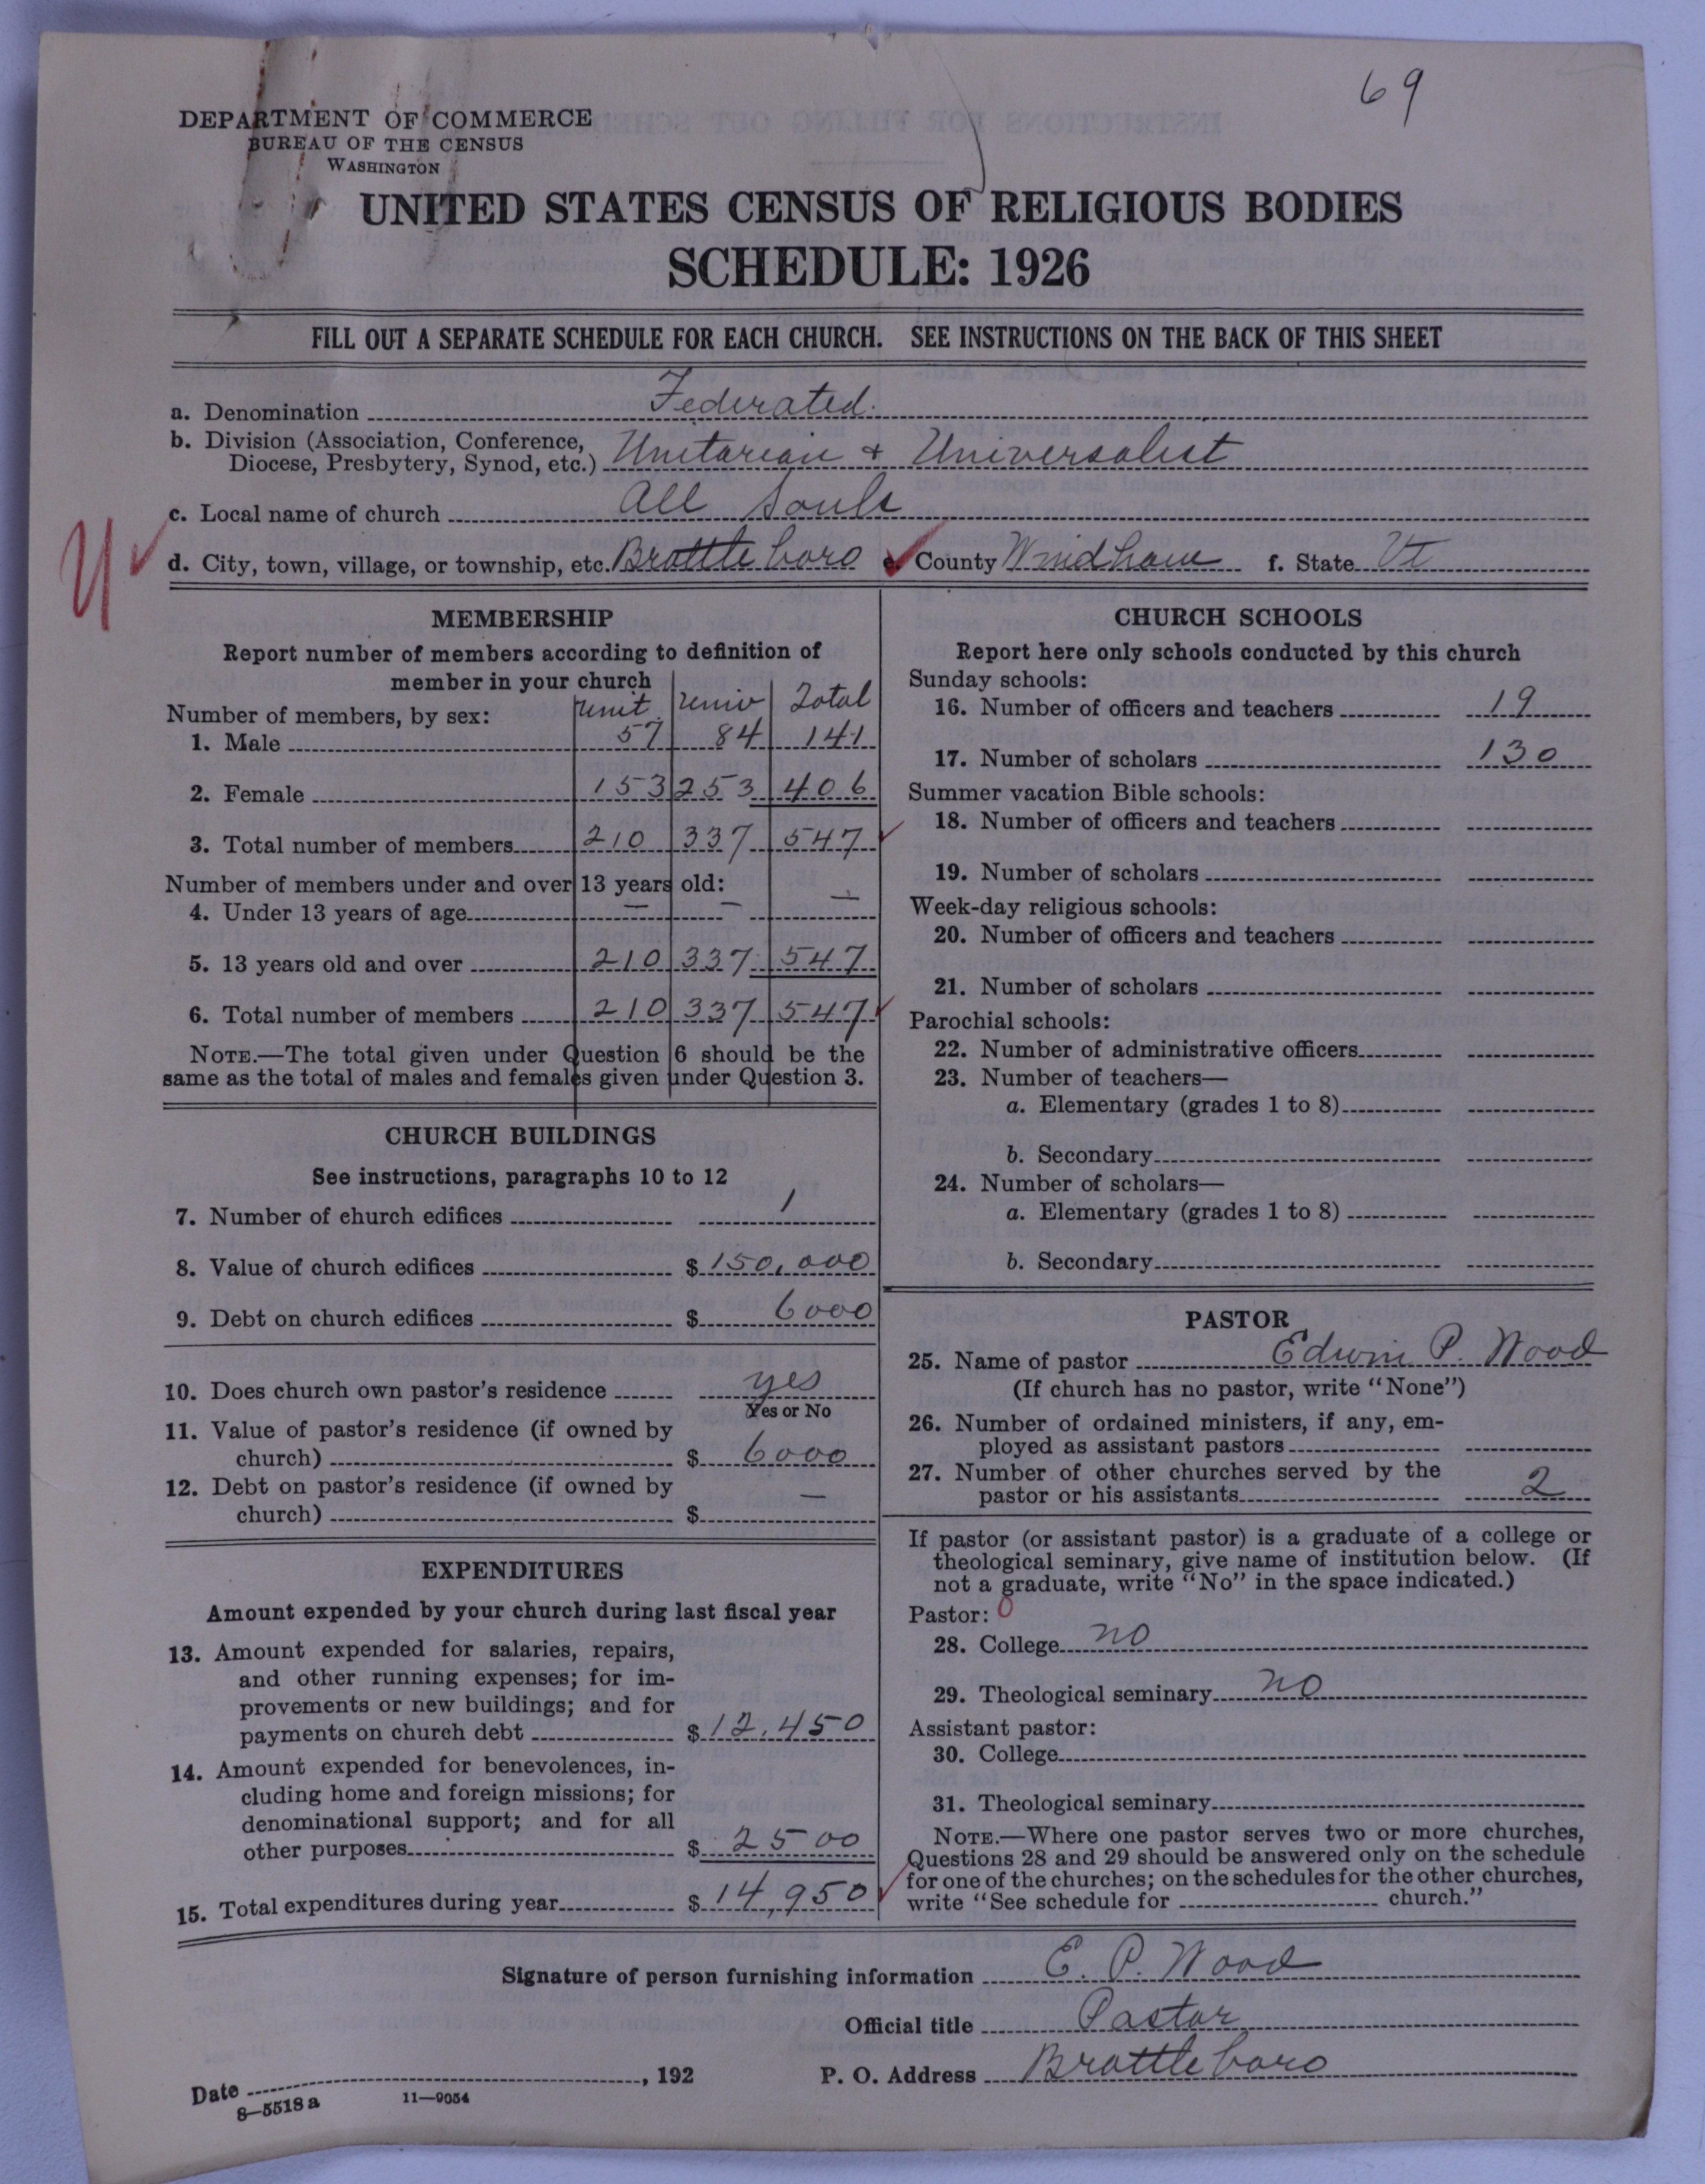 69
DEPARTMENT OF COMMERCE
BUREAU OF THE CENSUS
WASHINGTON
UNITED STATES CENSUS OF RELIGIOUS BODIES
SCHEDULE: 1926
FILL OUT A SEPARATE SCHEDULE FOR EACH CHURCH. SEE INSTRUCTIONS ON THE BACK OF THIS SHEET
a. Denomination Federated.
b. Division (Association, Conference,
Diocese, Presbytery, Synod, etc.) Unitarian + Universalist
c. Local name of church All Souls
d. City, town, village, or township, etc. Brattleboro e. County Windham f. State Vt
MEMBERSHIP
Report number of members according to definition of
member in your church
Number of members, by sex: Unit Univ Total
1. Male 57 84 141
2. Female 153 253 406
3. Total number of members 210 337 547
Number of members under and over 13 years old:
4. Under 13 years of age — — —
5. 13 years old and over 210 337 547
6. Total number of members 210 337 547
NOTE.—The total given under Question 6 should be the
same as the total of males and females given under Question 3.
CHURCH BUILDINGS
See instructions, paragraphs 10 to 12
7. Number of church edifices 1
8. Value of church edifices $ 150,000
9. Debt on church edifices $ 6000
10. Does church own pastor's residence yes
Yes or No
11. Value of pastor's residence (if owned by
church) $ 6000
12. Debt on pastor's residence (if owned by
church) $ —
EXPENDITURES
Amount expended by your church during last fiscal year
13. Amount expended for salaries, repairs,
and other running expenses; for im-
provements or new buildings; and for
payments on church debt $ 12,450
14. Amount expended for benevolences, in-
cluding home and foreign missions; for
denominational support; and for all
other purposes $ 2500
15. Total expenditures during year $ 14,950
CHURCH SCHOOLS
Report here only schools conducted by this church
Sunday schools:
16. Number of officers and teachers 19
17. Number of scholars 130
Summer vacation Bible schools:
18. Number of officers and teachers
19. Number of scholars
Week-day religious schools:
20. Number of officers and teachers
21. Number of scholars
Parochial schools:
22. Number of administrative officers
23. Number of teachers—
a. Elementary (grades 1 to 8)
b. Secondary
24. Number of scholars—
a. Elementary (grades 1 to 8)
b. Secondary
PASTOR
25. Name of pastor Edwin P. Wood
(If church has no pastor, write "None")
26. Number of ordained ministers, if any, em-
ployed as assistant pastors
27. Number of other churches served by the
pastor or his assistants 2
If pastor (or assistant pastor) is a graduate of a college or
theological seminary, give name of institution below. (If
not a graduate, write "No" in the space indicated.)
Pastor: 0
28. College no
29. Theological seminary no
Assistant pastor:
30. College
31. Theological seminary
NOTE.—Where one pastor serves two or more churches,
Questions 28 and 29 should be answered only on the schedule
for one of the churches; on the schedules for the other churches,
write "See schedule for church."
Signature of person furnishing information E. P. Wood
Official title Pastor
Date , 192 P. O. Address Brattleboro
8—5518 a 11—9054